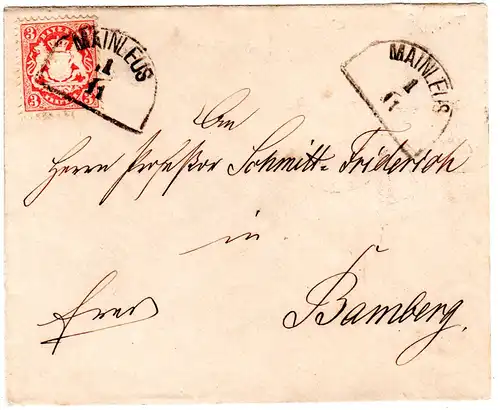 3 3
MAINLEUS
1
11
MAINLEUS
1
11
An
Herrn Professor Schmitt-Friderich
in
Bamberg.
frei